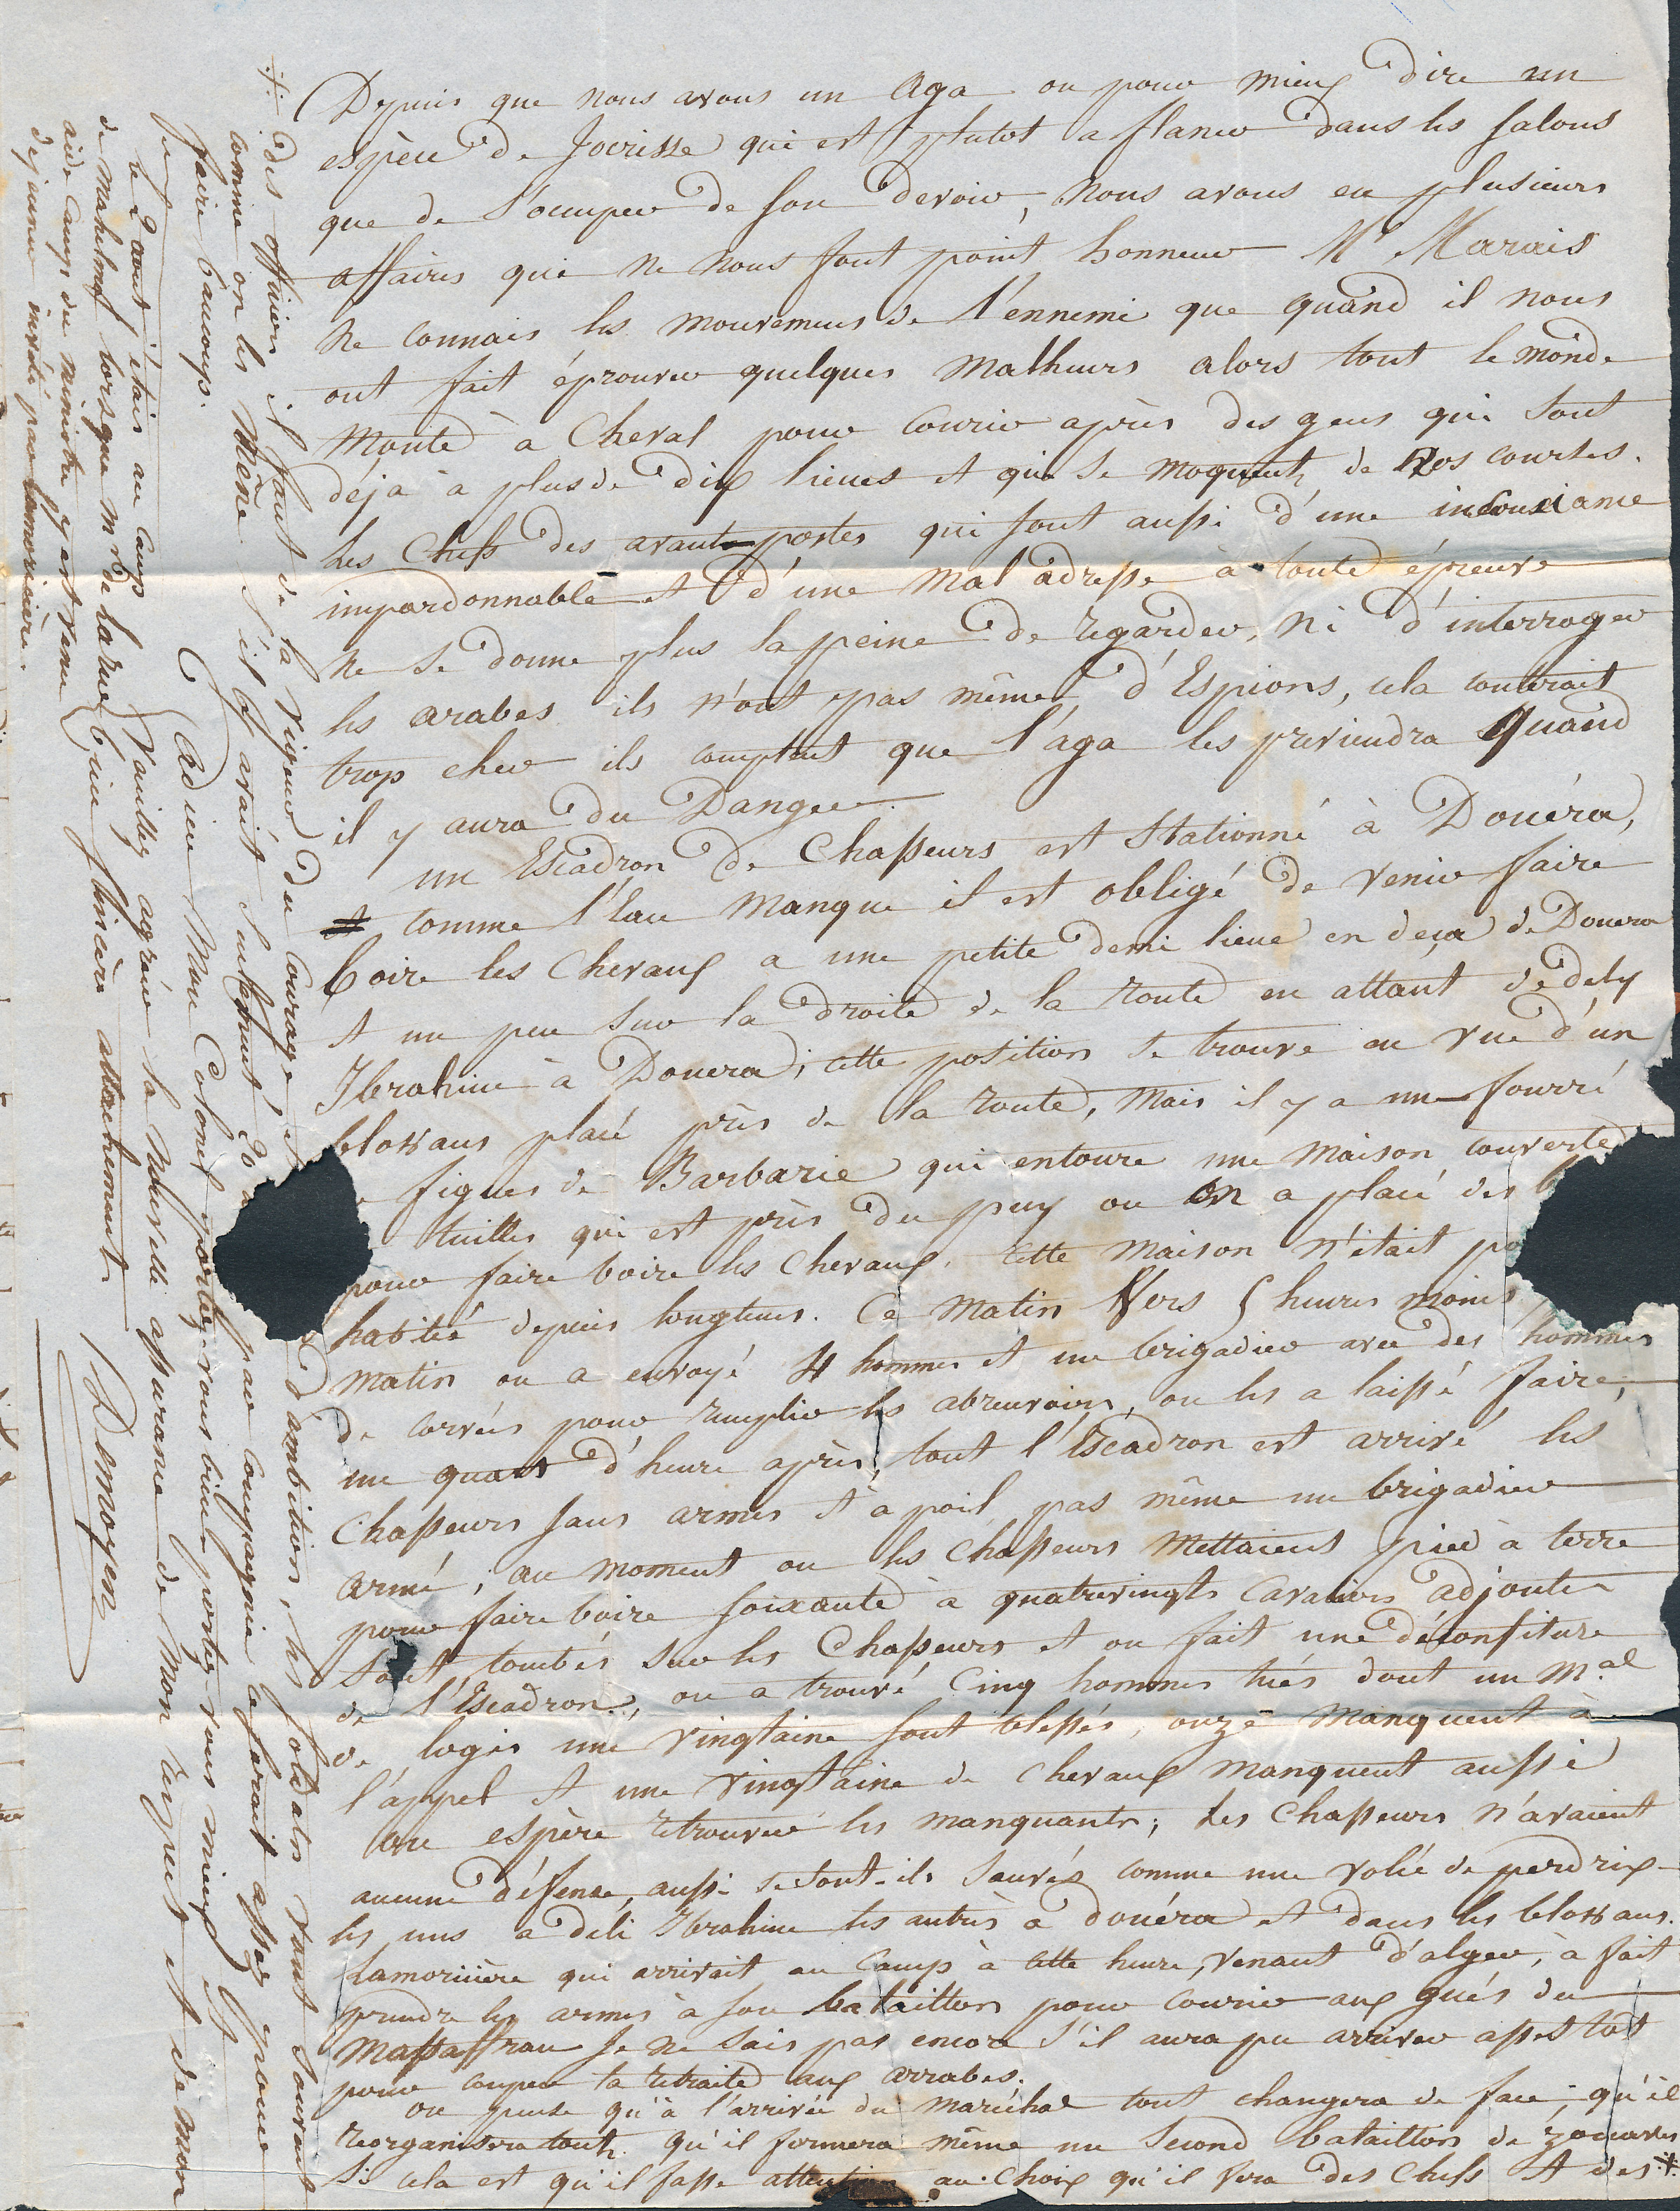 Depuis que nous avons un aga ou pour mieux dire un
espèce de Jocrisse qui est plutot a flaner dans les salons
que de s'occuper de son devoir, nous avons eu plusieurs
affaires qui ne nous font point honneur Mr Marais
ne connais les mouvemens de l'ennemi que quand il nous
ont fait éprouver quelques malheurs alors tout le monde
monte à cheval pour courir après des gens qui sont
déja à plus de dix lieues et qui se moquent de nos courses.
les chefs des avant-postes qui sont aussi d'une insousiance
impardonnable et d'une mal adresse à toute épreuve
ne se donne plus la peine de regarder, ni d'interroger
les arabes ils n'ont pas même d'Espions, cela couterait
trop cher ils comptent que l'aga les previendra quand
il y aura du Danger.
un Escadron de Chasseurs est stationné à Douéra,
et comme l'Eau manque il est obligé de venir faire
boire les chevaux a une petite demi lieue en deça de Douera
et un peu sur la droite de la route en allant de dely
Ibrahim à Douera; cette position se trouve en vue d'un
blokaus placé près de la route, mais il y a un fourré
figues de Barbarie qui entoure une maison couverte
tuilles qui est près du puy ou on a placé des b
pour faire boire les chevaux. cette maison n'était pa
habitée depuis longtems. Ce matin Vers 5 heures moins
matin on a envoyé 4 hommes et un brigadier avec des hommes
de corvées pour remplir les abreuvoirs, on les a laissé faire;
une quart d'heure après, tout l'Escadron est arrivé les
Chasseurs sans armes et à poil pas même un brigadier
armé; au moment ou les chasseurs mettaient pied à terre
pour faire boire soixante à quatrevingts cavaliers adjoutes
sont tombés sur les Chasseurs et on fait une déconfiture
de l'Escadron, on a trouvé Cinq hommes tués dont un Mal
de logis une vingtaine sont blessés, onze manquent à
l'appel et une vingtaine de chevaux manquent aussi
on espère retrouver les manquants; les Chasseurs n'avaient
aucune défense, aussi se sont-ils sauvés comme une volée de perdrix
les uns a deli Ibrahim les autres à douéra et dans les blokaus.
Lamoricière qui arrivait au camp à cette heure, venant d'alger, à fait
prendre les armes à son bataillon pour courir aux gués du
Massaffran Je ne sais pas encore s'il aura pu arriver assez tot
pour couper la retraite aux arrabes.
on pense qu'à l'arrivée du maréchal tout changera de face; qu'il
reorganisera tout, qu'il formera même un second bataillon de zouaves
Si cela est qu'il fasse attention au choix qu'il fera des chefs et des *
des officiers il faut de la vigueur du courage et d'ambition, les soldats vont souvent
comme on les mène s'il y avait seulement 20 par compagnie ce serait assez pour
faire beaucoup.
Adieu Mon Colonel portez-vous bien portez vous mieux et
le 2 aout j'étais au camp
de mahelma lorsque mr de la rue
aide camp du ministre y est venu
dejeuner invité par lamoricière.
Veuillez agréer la nouvelle assurance de mon respect et de mon
bien sincère attachement
Dmoyen